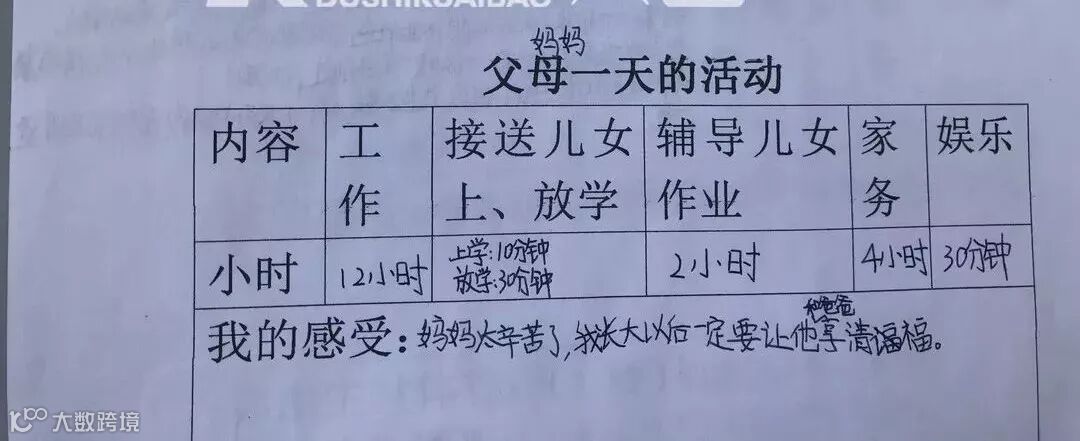 DUSHIKUAIBAO
妈妈
父母一天的活动
内容 工作 接送儿女上、放学 辅导儿女作业 家务 娱乐
小时 12小时 上学:10分钟 放学:30分钟 2小时 4小时 30分钟
和爸爸
我的感受:妈妈太辛苦了,我长大以后一定要让他享清福。
大数跨境